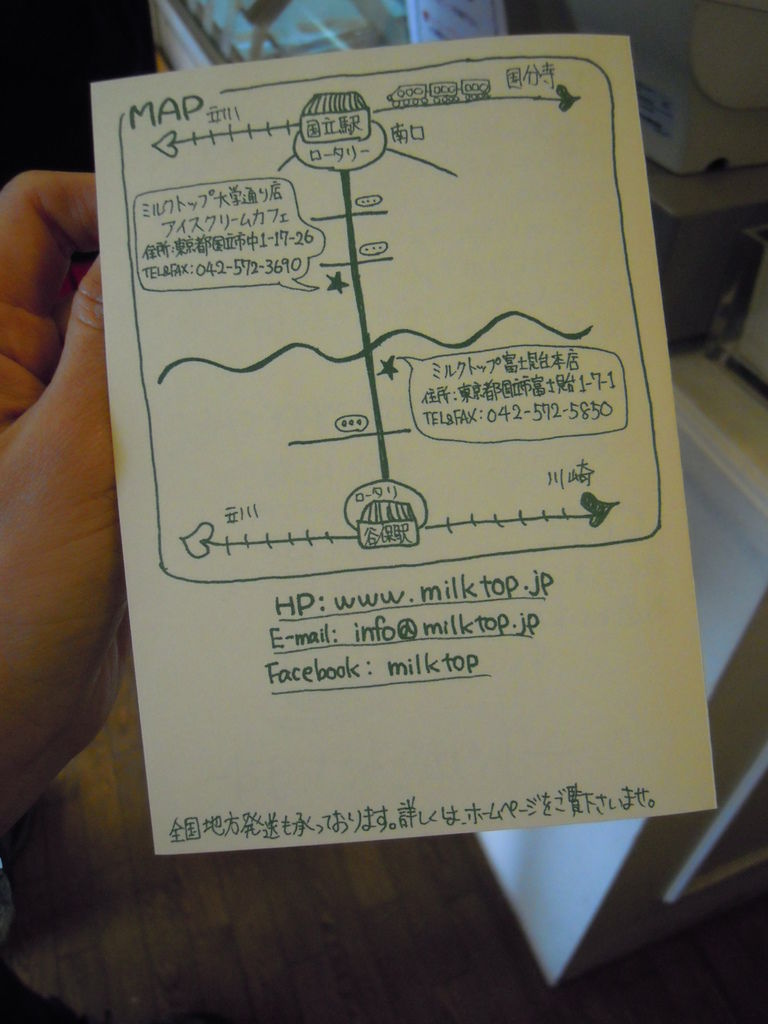 MAP
立川
国分寺
国立駅
南口
ロータリー
ミルクトップ大学通り店
アイスクリームカフェ
住所:東京都国立市中1-17-26
TEL&FAX:042-572-3690
ミルクトップ富士見台本店
住所:東京都国立市富士見台1-7-1
TEL&FAX:042-572-5850
ロータリ
川崎
立川
谷保駅
HP: www.milktop.jp
E-mail: info@milktop.jp
Facebook: milktop
全国地方発送も承っております。詳しくは、ホームページをご覧下さいませ。